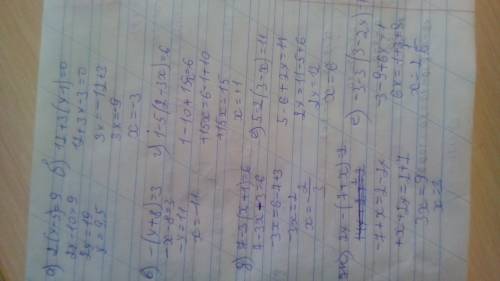 а) 2(x-5)=9
2x-10=9
2x=19
x=9,5
б) 12+3(x-1)=0
12+3x-3=0
3x=-12+3
3x=-9
x=-3
в) -(x+8)=3
-x-8=3
-x=11
x=-11
г) 1-5(2-3x)=6
1-10+15x=6
+15x=6-1+10
+15x=15
x=+1
д) 7-3(x+1)=6
7-3x-
3x=6-7+3
-3x=2
x=-2
е) 5-2(3-x)=11
5-6+2x=11
2x=11-5+6
2x=12
x=6
2x-(7+x)
-7+x=2-2x
+x+2x=2+7
3x=9
x=3
е) -3-3(3-2x)
3-9+6x=1
x=2,5